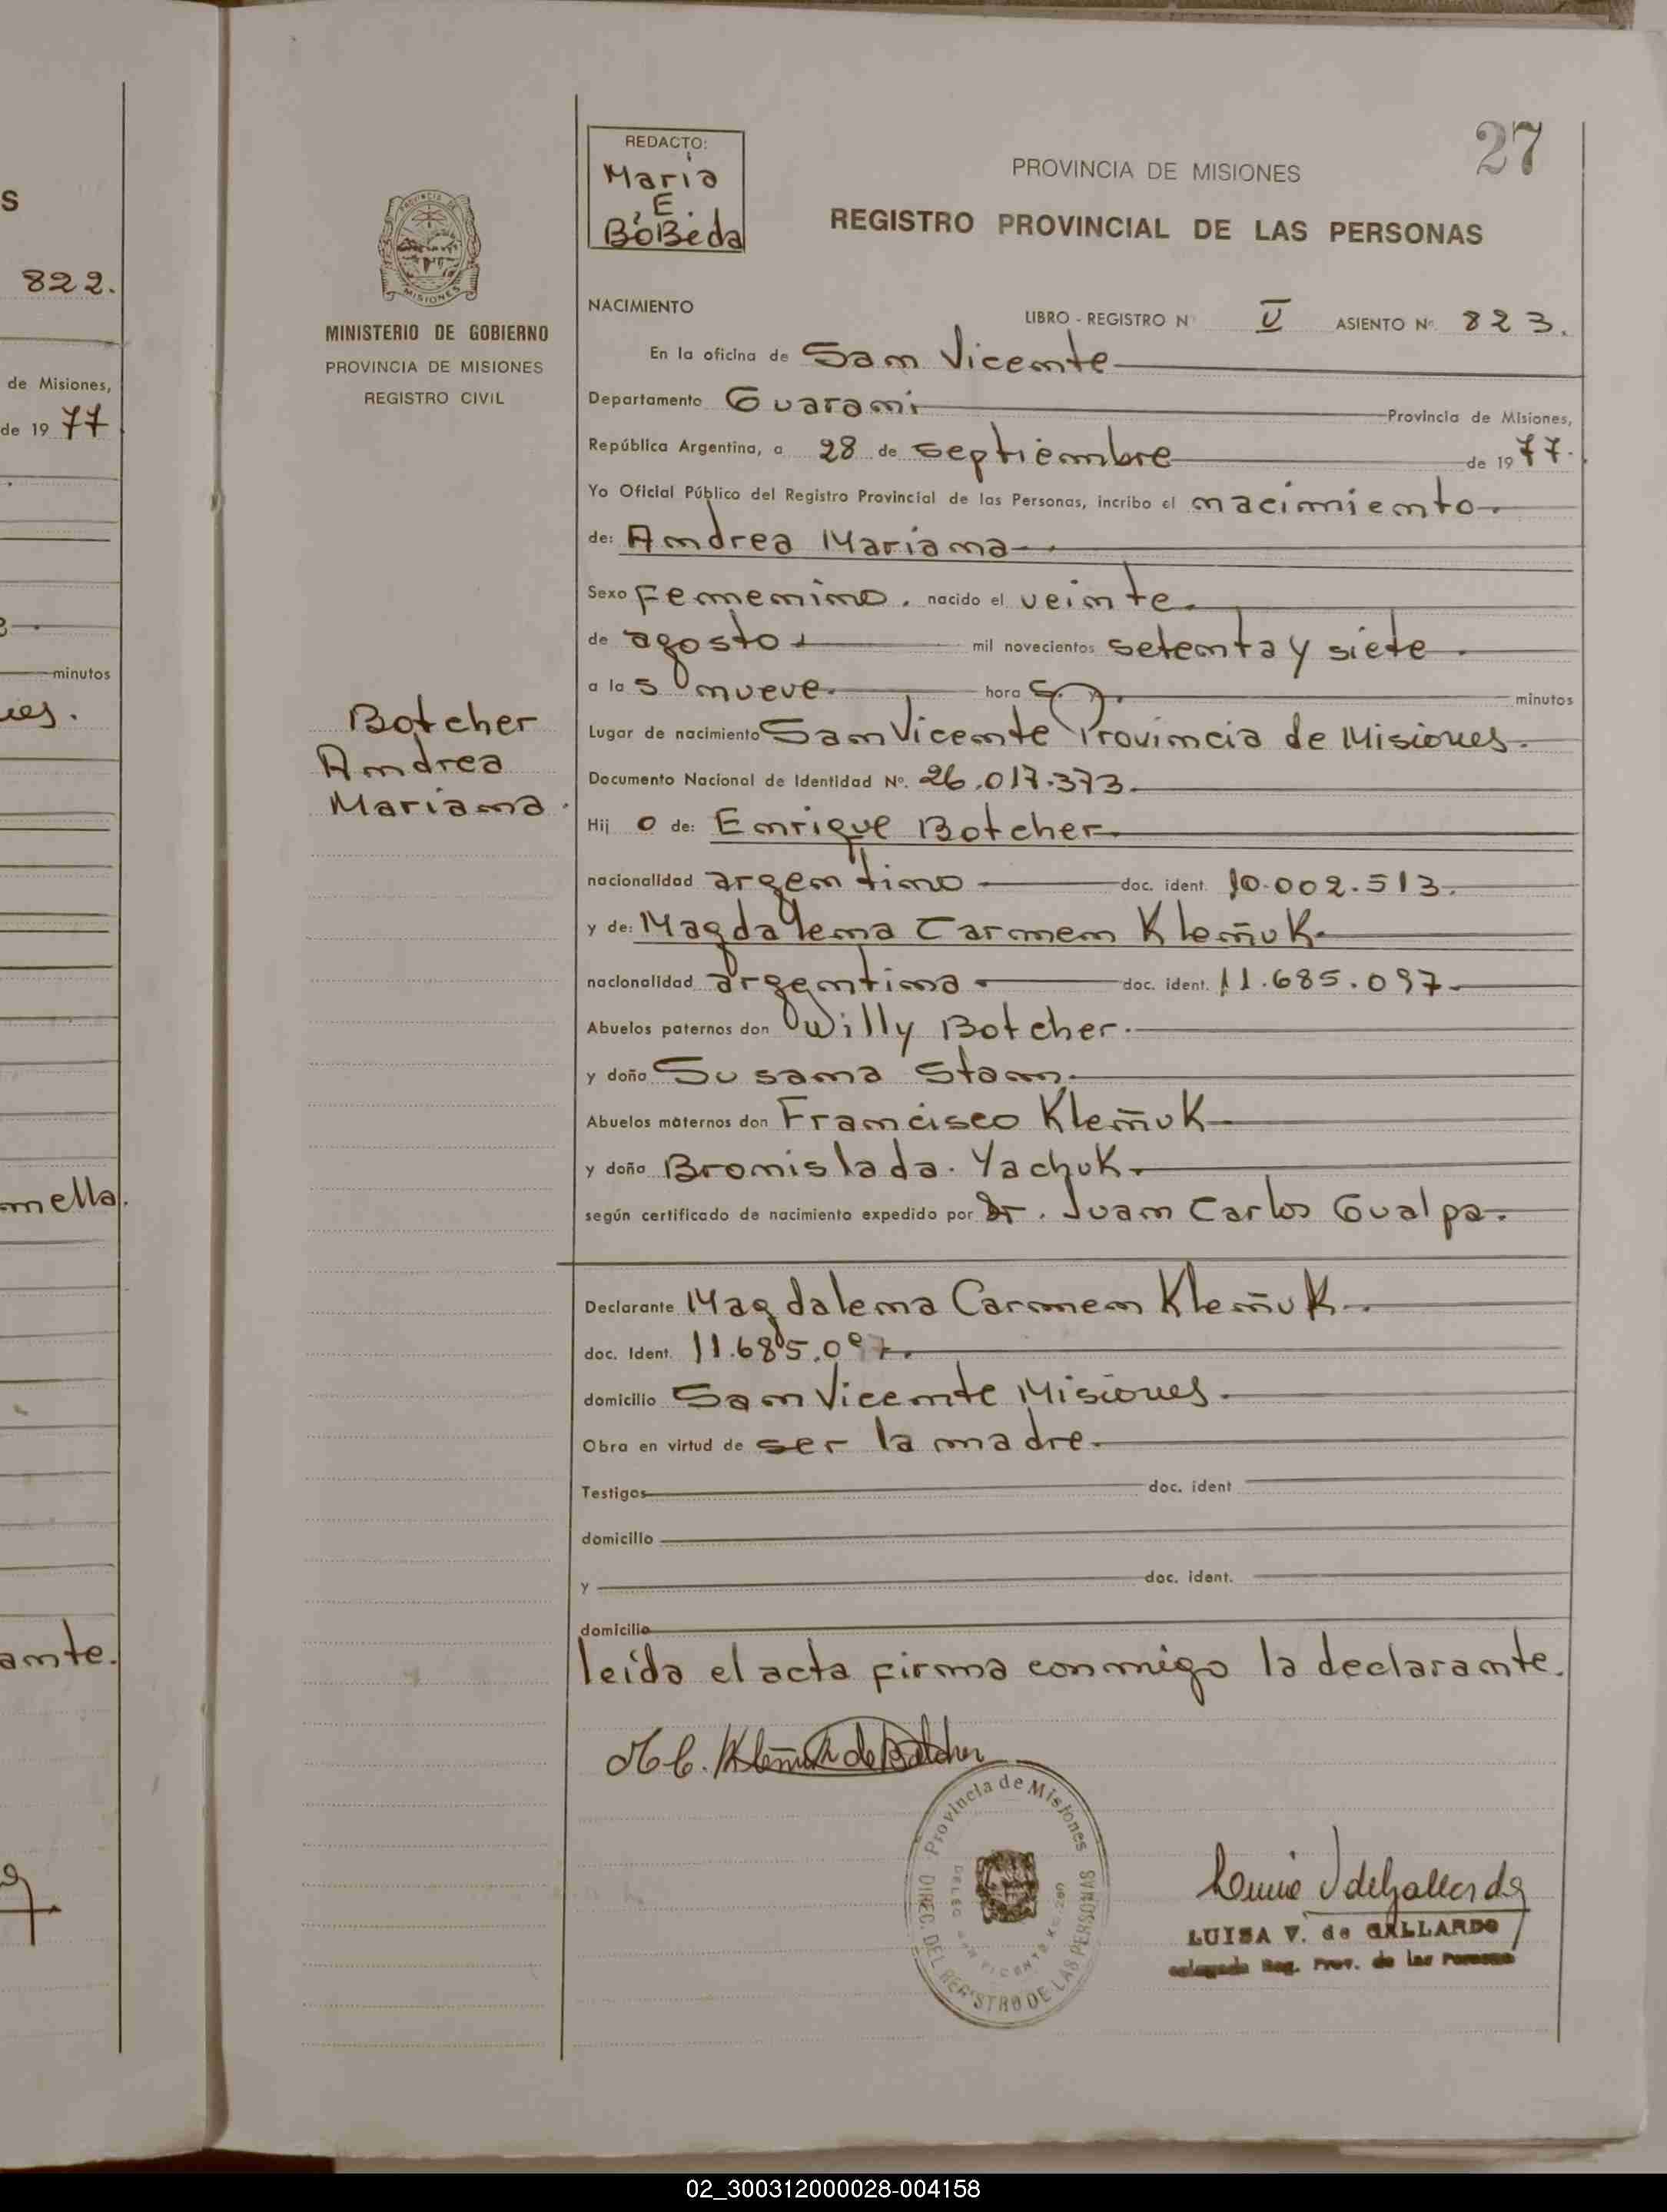 S
822.
de Misiones,
de 19 77
minutos
mella.
amte.
REDACTO:
Maria
E.
BoBeda
27
PROVINCIA DE MISIONES
REGISTRO PROVINCIAL DE LAS PERSONAS
PROVINCIA DE
MISIONES
MINISTERIO DE GOBIERNO
PROVINCIA DE MISIONES
REGISTRO CIVIL
NACIMIENTO
LIBRO - REGISTRO N° V ASIENTO N° 823.
En la oficina de San Vicente
Departamento Guarani Provincia de Misiones,
República Argentina, a 28 de septiembre de 1977.
Yo Oficial Público del Registro Provincial de las Personas, incribo el nacimiento.
de: Andrea Mariana
Sexo Femenino. nacido el veinte.
de agosto mil novecientos setenta y siete.
a la s nueve. hora s. minutos
Botcher
Andrea
Mariana.
Lugar de nacimiento San Vicente Provincia de Misiones.
Documento Nacional de Identidad N°. 26.017.373.
Hij o de: Enrique Botcher.
nacionalidad argentino doc. ident. 10.002.513.
y de: Magdalena Carmen Kleñuk.
nacionalidad argentina doc. ident. 11.685.097.
Abuelos paternos don Willy Botcher.
y doña Susana Stam.
Abuelos maternos don Francisco Kleñuk
y doña Bronislada. Yachuk.
según certificado de nacimiento expedido por Dr. Juan Carlos Gualpa.
Declarante Magdalena Carmen Kleñuk.
doc. Ident. 11.685.097.
domicilio San Vicente Misiones.
Obra en virtud de ser la madre.
Testigos doc. ident
domicilio
y doc. ident.
domicilio
leída el acta firma conmigo la declarante.
M C. Kleñuk de Botcher
Provincia de Misiones
DIREC. DEL REGISTRO DE LAS PERSONAS
LUISA V. de GALLARDO
Reg. Prov. de las Personas
02_300312000028-004158